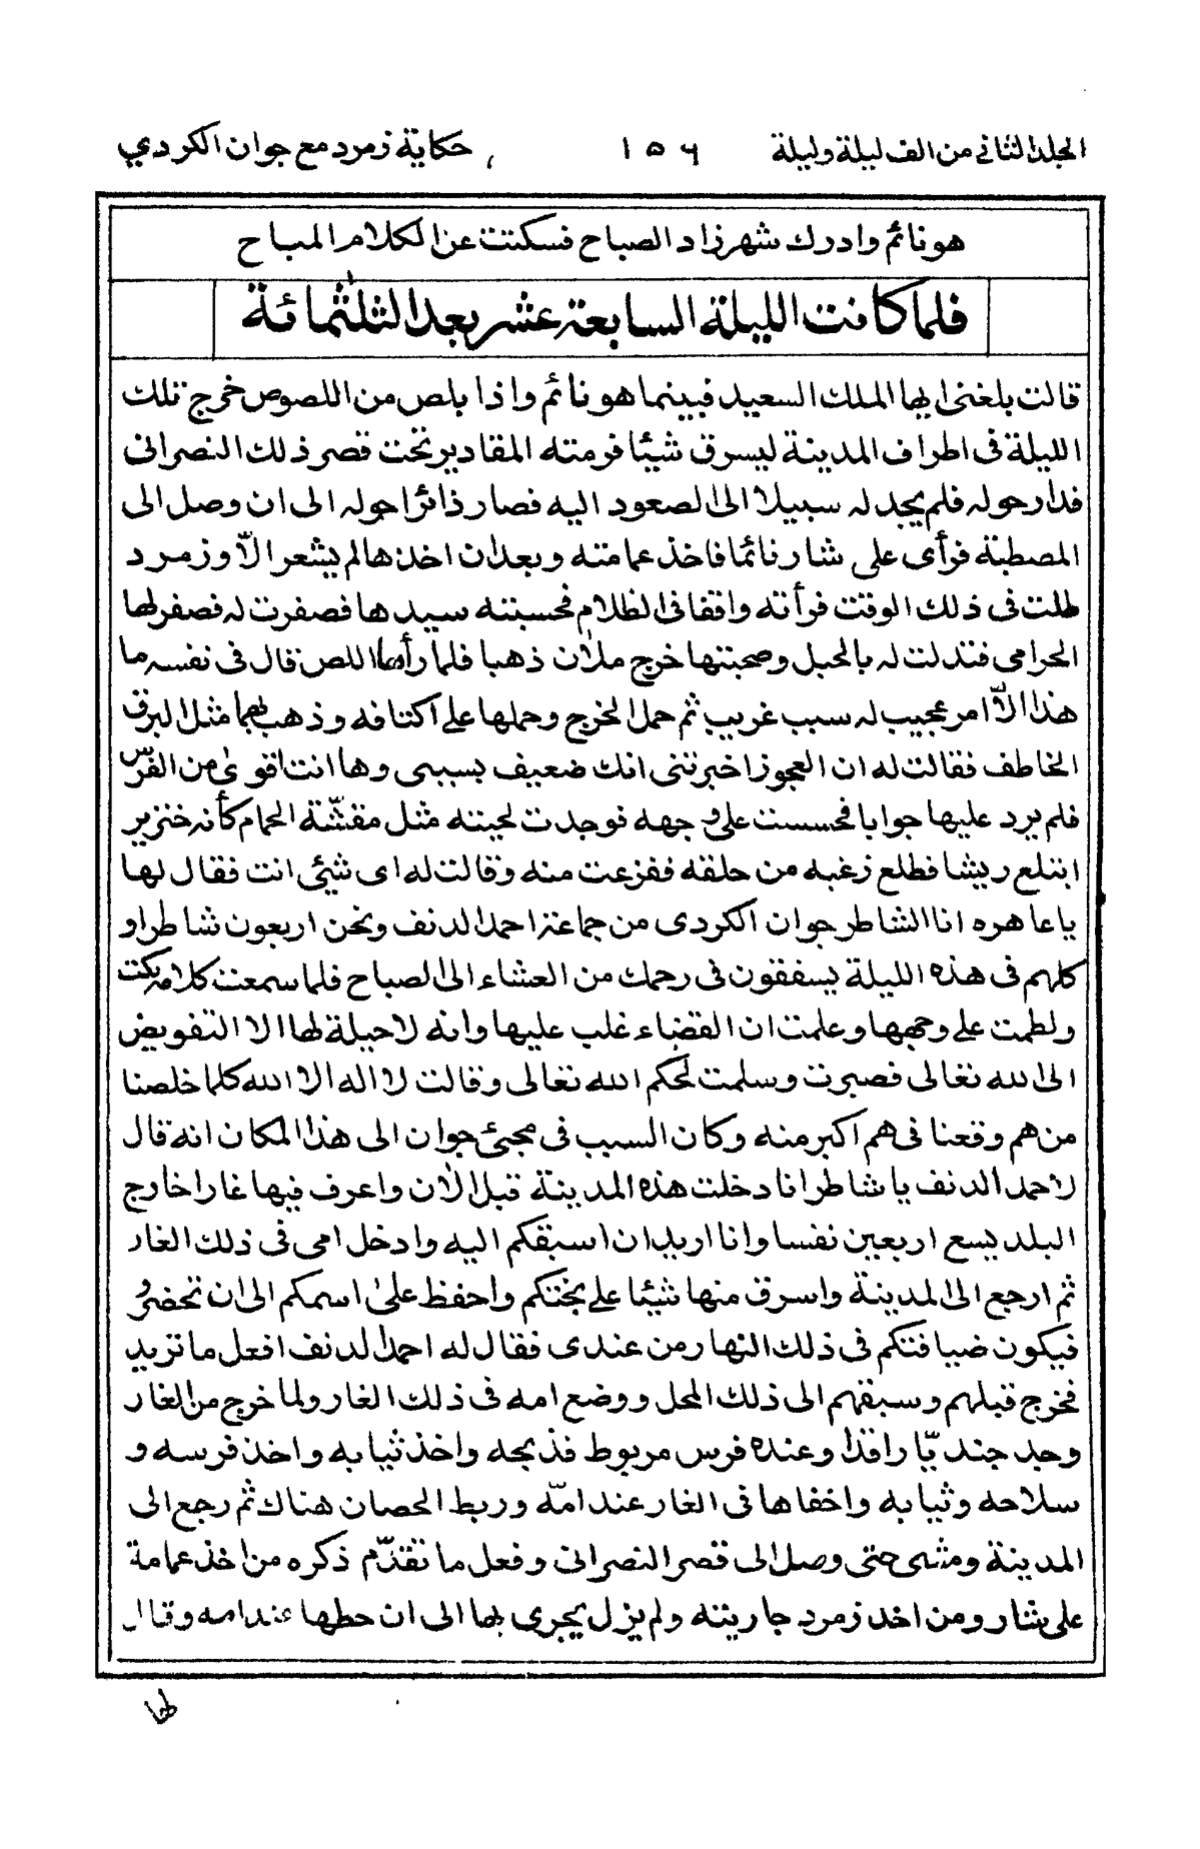 المجلد الثانى من الف ليلة وليلة ١٥٦ حكاية زمرد مع جوان الكردي
هو نائم وادرك شهرزاد الصباح فسكتت عن الكلام المباح
فلما كانت الليلة السابعة عشر بعد الثلثمائة
قالت بلغنى ايها الملك السعيد فبينما هو نائم واذا بلص من اللصوص خرج تلك
الليلة فى اطراف المدينة ليسرق شيئا فرمته المقادير تحت قصر ذلك النصرانى
فدار حوله فلم يجد له سبيلا الى الصعود اليه فصار ذائرا حوله الى ان وصل الى
المصطبة فرأى على شار نائما فاخذ عمامته وبعد ان اخذها لم يشعر الّا وزمرد
طلت فى ذلك الوقت فرأته واقفا فى الظلام فحسبته سيدها فصفرت له فصفر لها
الحرامى فتدلت له بالحبل وصحبتها خرج ملآن ذهبا فلما رأها اللص قال فى نفسه ما
هذا الّا امر عجيب له سبب غريب ثم حمل الخرج وحملها على اكتافه وذهب بهما مثل البرق
الخاطف فقالت له ان العجوز اخبرتنى انك ضعيف بسببى وها انت اقوى من الفرس
فلم يرد عليها جوابا فحسست على وجهه فوجدت لحيته مثل مقشّة الحمام كأنه خنزير
ابتلع ريشا فطلع زغبه من حلقه ففزعت منه وقالت له اى شيئ انت فقال لها
يا عاهره انا الشاطر جوان الكردى من جماعة احمد الدنف ونحن اربعون شاطرا و
كلهم فى هذه الليلة يسفقون فى رحمك من العشاء الى الصباح فلما سمعت كلامه بكت
ولطمت على وجهها وعلمت ان القضاء غلب عليها وانه لا حيلة لها الا التفويض
الى الله تعالى فصبرت وسلمت لحكم الله تعالى وقالت لا اله الا الله كلما خلصنا
من هم وقعنا فى هم اكبر منه وكان السبب فى مجيئ جوان الى هذا المكان انه قال
لاحمد الدنف يا شاطر انا دخلت هذه المدينة قبل الآن واعرف فيها غارا خارج
البلد يسع اربعين نفسا وانا اريد ان اسبقكم اليه وادخل امى فى ذلك الغار
ثم ارجع الى المدينة واسرق منها شيئا على بختكم واحفظ على اسمكم الى ان تحضروا
فيكون ضيافتكم فى ذلك النهار من عندى فقال له احمد الدنف افعل ما تريد
فخرج قبلهم وسبقهم الى ذلك المحل ووضع امه فى ذلك الغار ولما خرج من الغار
وجد جنديّا راقدا وعنده فرس مربوط فذبحه واخذ ثيابه واخذ فرسه و
سلاحه وثيابه واخفاها فى الغار عند امّه وربط الحصان هناك ثم رجع الى
المدينة ومشى حتى وصل الى قصر النصرانى وفعل ما تقدّم ذكره من اخذ عمامة
على شار ومن اخذ زمرد جاريته ولم يزل يجرى بها الى ان حطها عند امه وقال
لها